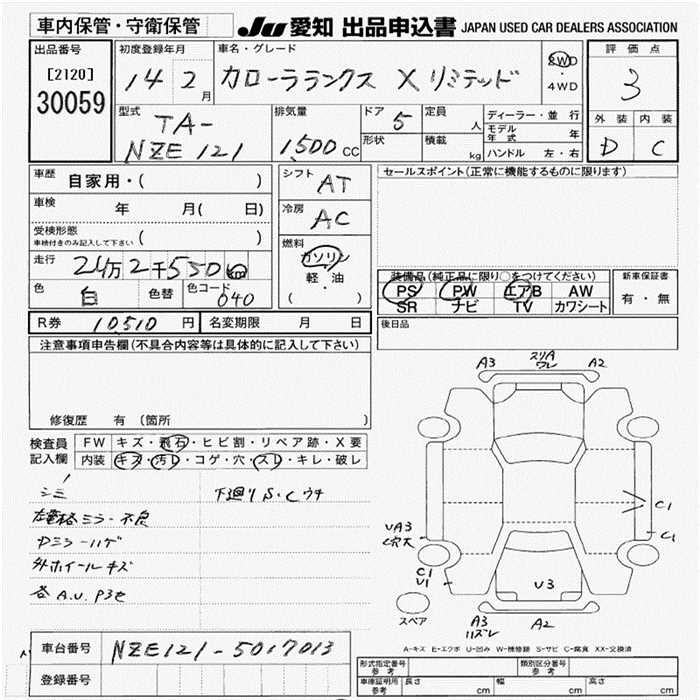 車内保管・守衛保管
JU 愛知 出品申込書 JAPAN USED CAR DEALERS ASSOCIATION
出品番号
[2120]
30059
初度登録年月
14 2月
車名・グレード
カローラランクス X リミテッド
2WD
・
4WD
評価点
3
外装 内装
D C
型式
TA-
NZE 121
排気量
1500 CC
ドア
5
形状
定員
人
積載
kg
ディーラー・並行
モデル年式 年
ハンドル 左・右
車歴 自家用・( )
車検 年 月( 日)
受検形態
車検付きのみ記入して下さい ( )
走行
24万2千550km
色 白 色替 色コード 040
シフト
AT
冷房
AC
燃料
ガソリン
軽・油
( )
セールスポイント(正常に機能するものに限ります)
装備品(純正品に限り○をつけてください)
PS PW エアB AW
SR ナビ TV カワシート
新車保証書
有・無
R券 10510 円 名変期限 月 日
後日品
注意事項申告欄(不具合内容等は具体的に記入して下さい)
修復歴 有 (箇所 )
検査員記入欄
FW キズ・飛石・ヒビ割・リペア跡・X要
内装 キズ・汚レ・コゲ・穴・スレ・キレ・破レ
シミ 下廻り S・Cウチ
左電格ミラー不良
Dミラーハゲ
外ホイールキズ
各A.U. P3を
A3 スリA ワレ A2
C1
C1
UA3
C穴大
C1
U1
U3
スペア
A3
ハズレ
A2
A-キズ E-エクボ U-凹み W-補修跡 S-サビ C-腐食 XX-交換済
車台番号 NZE121-5017013
登録番号
形式指定番号
参考
類別区分番号
車庫証明用
参考
長さ cm 幅 cm 高さ cm